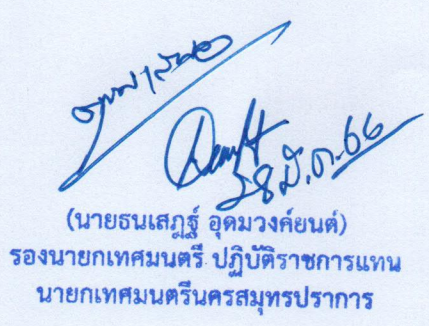 28 มี.ค. 66
(นายธนเสฎฐ์ อุดมวงค์ยนต์)
รองนายกเทศมนตรี ปฏิบัติราชการแทน
นายกเทศมนตรีนครสมุทรปราการ